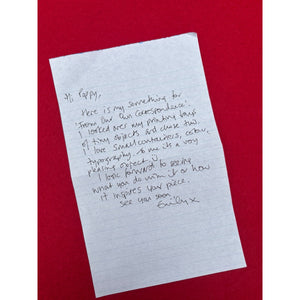 Hi Poppy,
Here is my something for
'From Our Own Correspondence'.
I looked over my printing bags
of tiny objects and chose two.
I love small containers, colour,
typography. So me its a very
pleasing object :)
I look forward to seeing
what you do with it or how
it inspires your piece.
See you soon.
Emily x